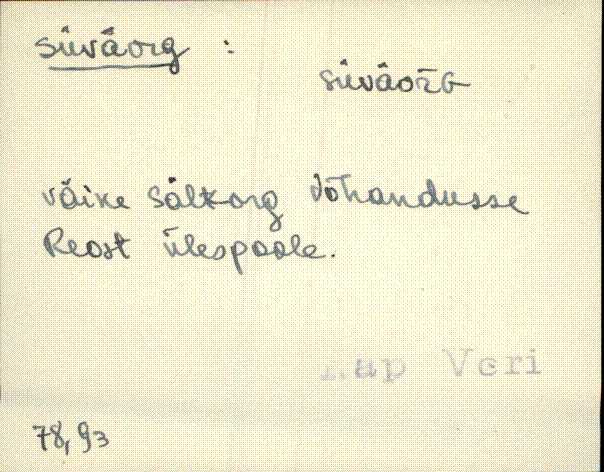 süväorg :
süväoŕG
väike sälkorg Võhandusse
Reost ülespoole.
Rap Veri
78, 93